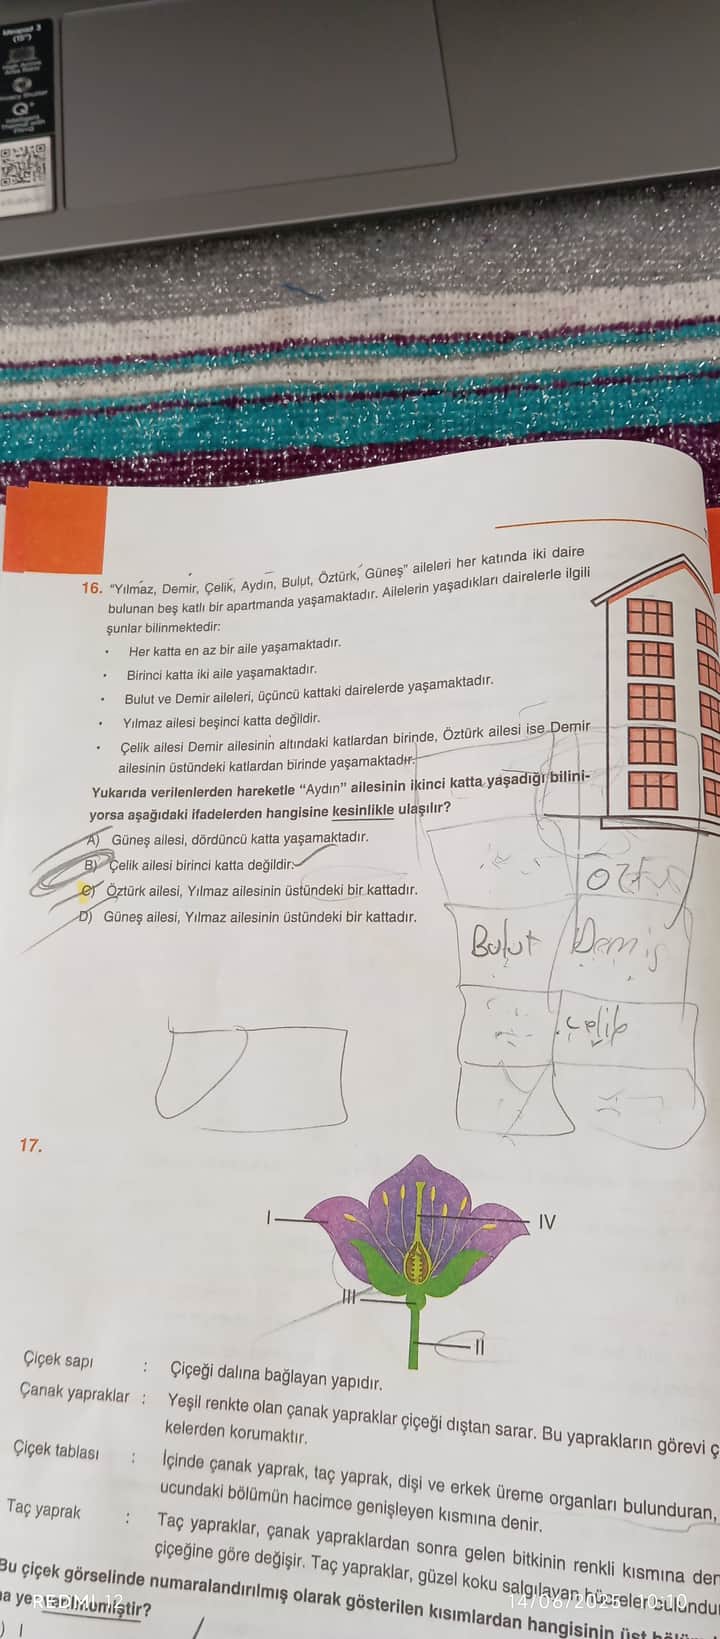 16. "Yılmaz, Demir, Çelik, Aydın, Bulut, Öztürk, Güneş" aileleri her katında iki daire
bulunan beş katlı bir apartmanda yaşamaktadır. Ailelerin yaşadıkları dairelerle ilgili
şunlar bilinmektedir:
• Her katta en az bir aile yaşamaktadır.
• Birinci katta iki aile yaşamaktadır.
• Bulut ve Demir aileleri, üçüncü kattaki dairelerde yaşamaktadır.
• Yılmaz ailesi beşinci katta değildir.
• Çelik ailesi Demir ailesinin altındaki katlardan birinde, Öztürk ailesi ise Demir
ailesinin üstündeki katlardan birinde yaşamaktadır.
Yukarıda verilenlerden hareketle "Aydın" ailesinin ikinci katta yaşadığı bilini-
yorsa aşağıdaki ifadelerden hangisine kesinlikle ulaşılır?
A) Güneş ailesi, dördüncü katta yaşamaktadır.
B) Çelik ailesi birinci katta değildir.
C) Öztürk ailesi, Yılmaz ailesinin üstündeki bir kattadır.
D) Güneş ailesi, Yılmaz ailesinin üstündeki bir kattadır.
Bulut Demir
Çelik
17.
I
IV
III
II
Çiçek sapı : Çiçeği dalına bağlayan yapıdır.
Çanak yapraklar : Yeşil renkte olan çanak yapraklar çiçeği dıştan sarar. Bu yaprakların görevi ç
kelerden korumaktır.
Çiçek tablası : İçinde çanak yaprak, taç yaprak, dişi ve erkek üreme organları bulunduran,
ucundaki bölümün hacimce genişleyen kısmına denir.
Taç yaprak : Taç yapraklar, çanak yapraklardan sonra gelen bitkinin renkli kısmına den
çiçeğine göre değişir. Taç yapraklar, güzel koku salgılayan
Bu çiçek görselinde numaralandırılmış olarak gösterilen kısımlardan hangisinin üst
REDMI 12
14/06/2025 10:10
) I